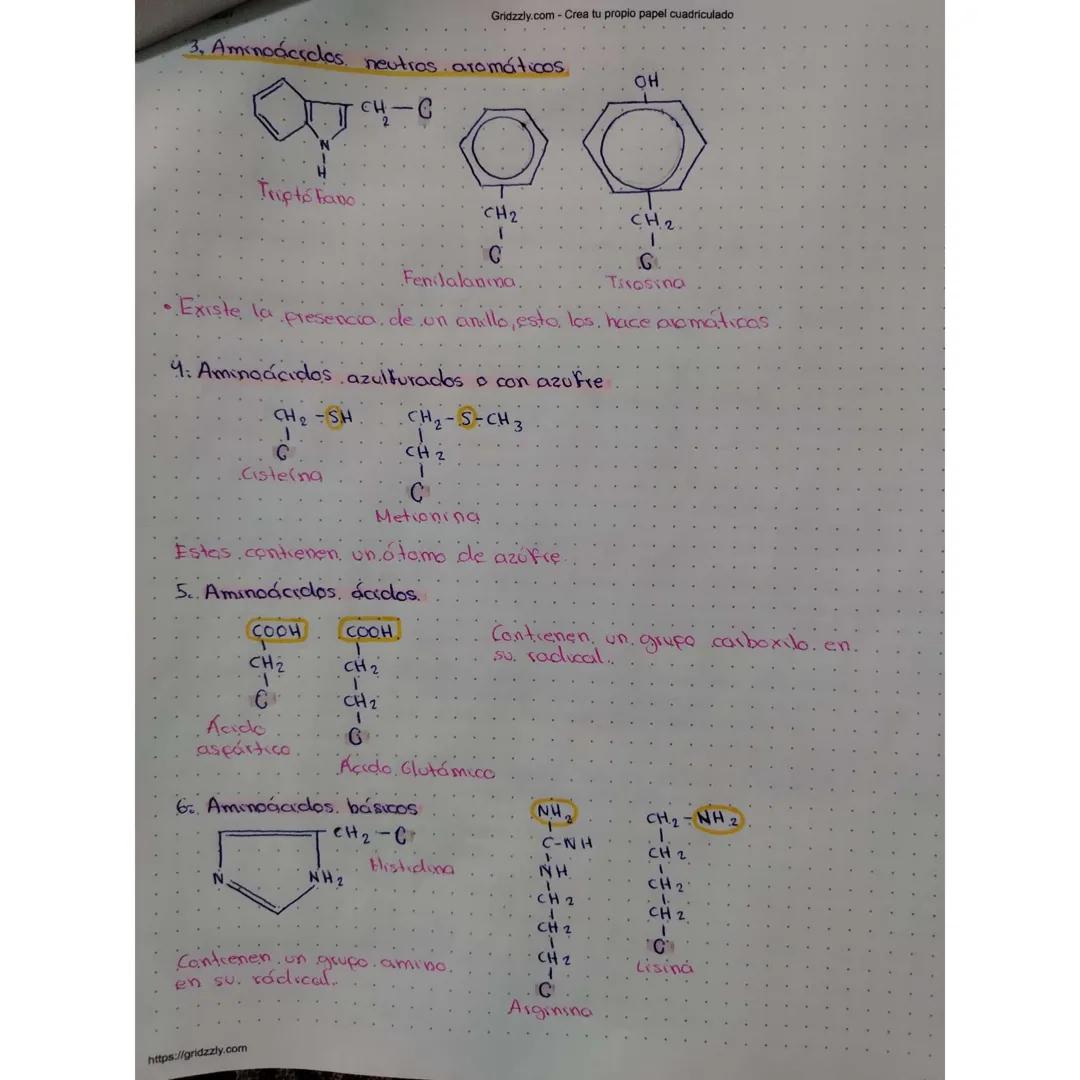 Gridzzly.com - Crea tu propio papel cuadriculado
3. Aminoácidos neutros aromáticos
CH2-C
N
H
Triptófano
CH2
C
Fenilalanina
OH
CH2
C
Tirosina
• Existe la presencia de un anillo, esto los hace aromáticos
4. Aminoácidos azulfurados o con azufre
CH2-SH
C
Cisteína
CH2-S-CH3
CH2
C
Metionina
Estos contienen un átomo de azúfre
5. Aminoácidos ácidos.
COOH
CH2
C
Ácido
aspártico
COOH
CH2
CH2
C
Ácido Glutámico
Contienen un grupo carboxilo en
su radical.
6. Aminoácidos básicos
CH2-C
N
NH2
Histidina
Contienen un grupo amino
en su rádical.
NH2
C-NH
NH
CH2
CH2
CH2
C
Arginina
CH2-NH2
CH2
CH2
CH2
C
Lisina
https://gridzzly.com